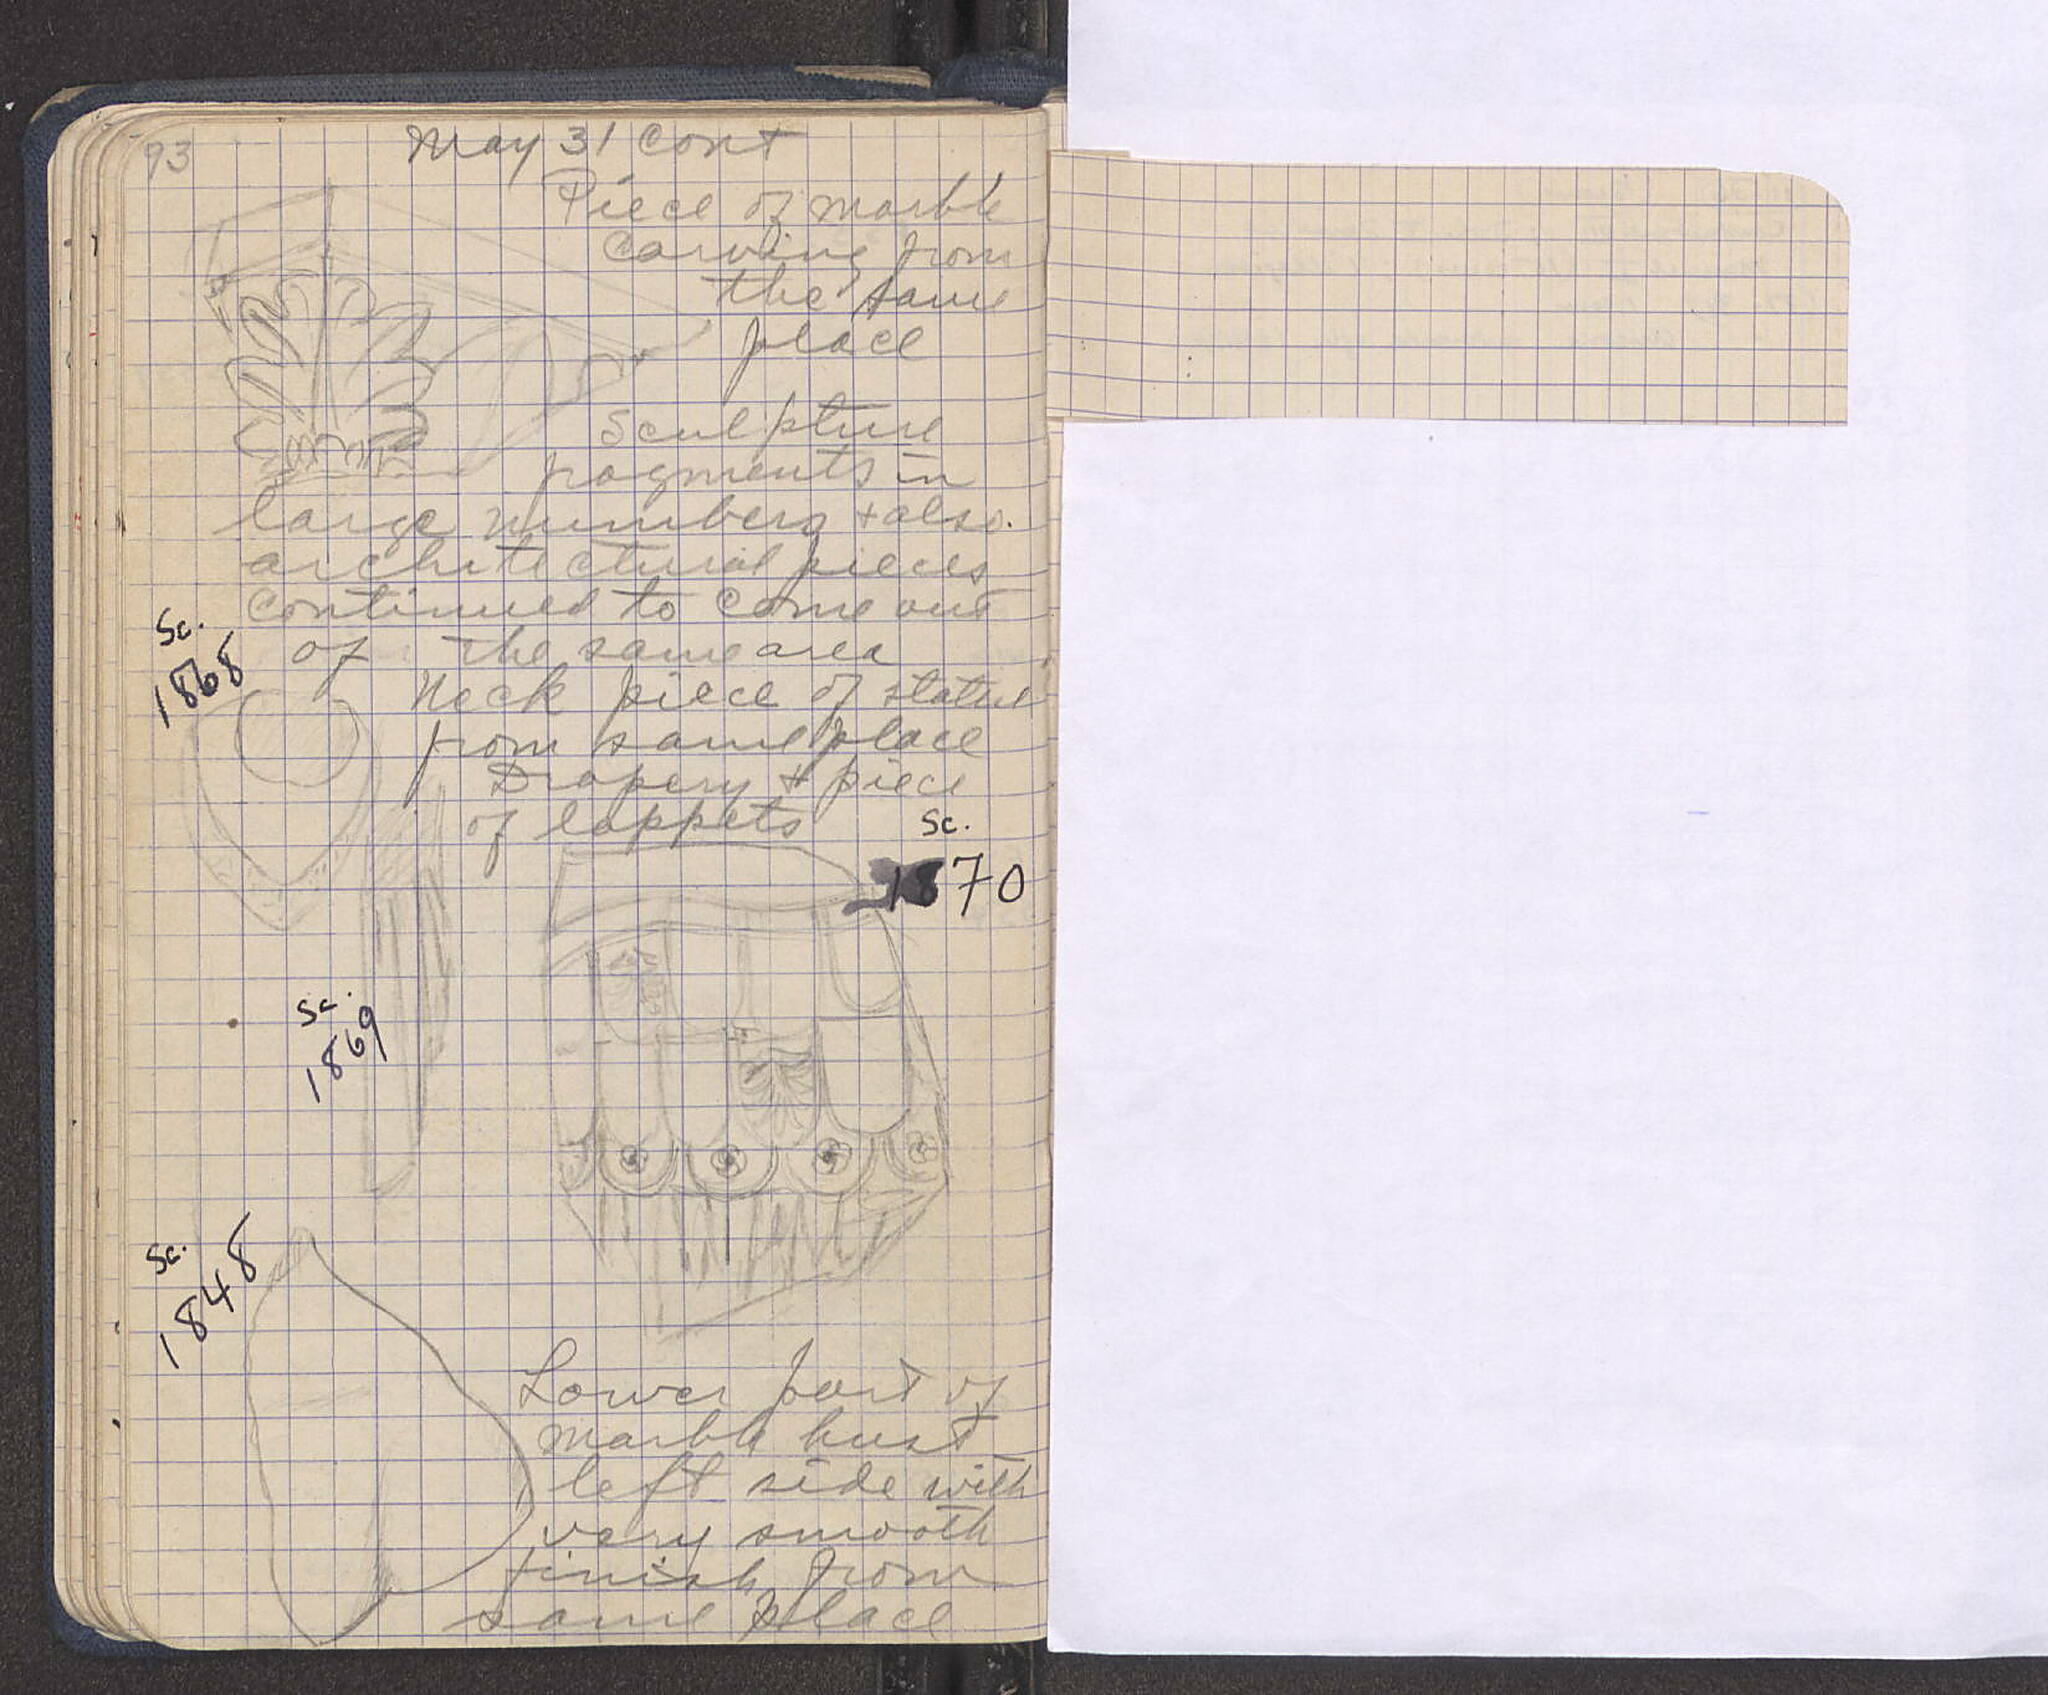 93
May 31 cont
Piece of marble
carving from
the same
place
Sculpture
fragments in
large numbers + also
architectural pieces
continued to come out
of the same area
Sc.
1868
Neck piece of statue
from same place
Drapery + piece
of lappets
Sc.
1870
Sc.
1869
Sc.
1848
Lower part of
marble bust
left side with
very smooth
finish from
same place